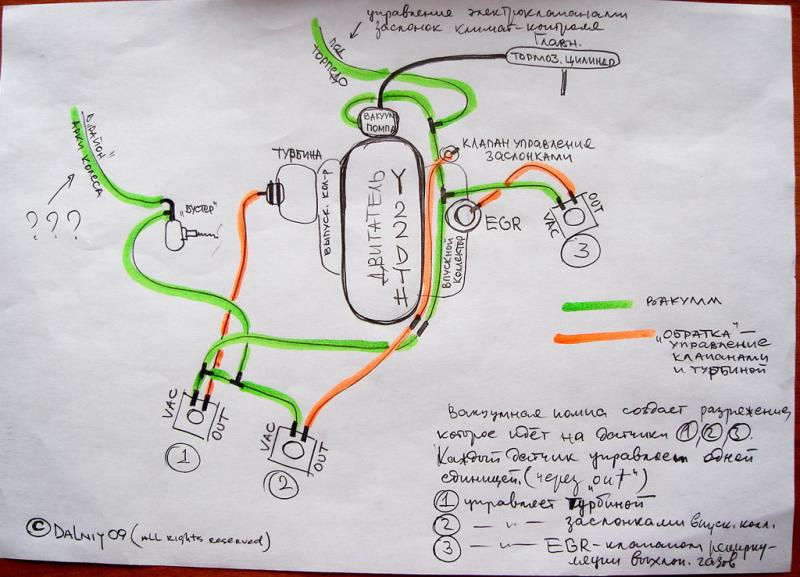 управление электроклапанами
заслонок климат-контроля
под
торпедо
Главн.
тормоз. цилиндр
вакуум
помпа
клапан управления
заслонками
турбина
в район"
арки колеса
???
"бустер"
выпуск. кол-р
двигатель
Y22DTH
впускной
коллектор
EGR
OUT
VAC
3
вакуумм
"обратка" –
управление
клапанами
и турбиной
VAC
OUT
1
VAC
OUT
2
Вакуумная помпа создает разрежение,
которое идёт на датчики 1, 2, 3.
Каждый датчик управляет одной
единицей. (через "out")
1 управляет турбиной
2 — " — заслонками впуск. колл.
3 — " — EGR-клапаном рецирку-
ляции выхлоп. газов
© DALNIY09 (All rights reserved)